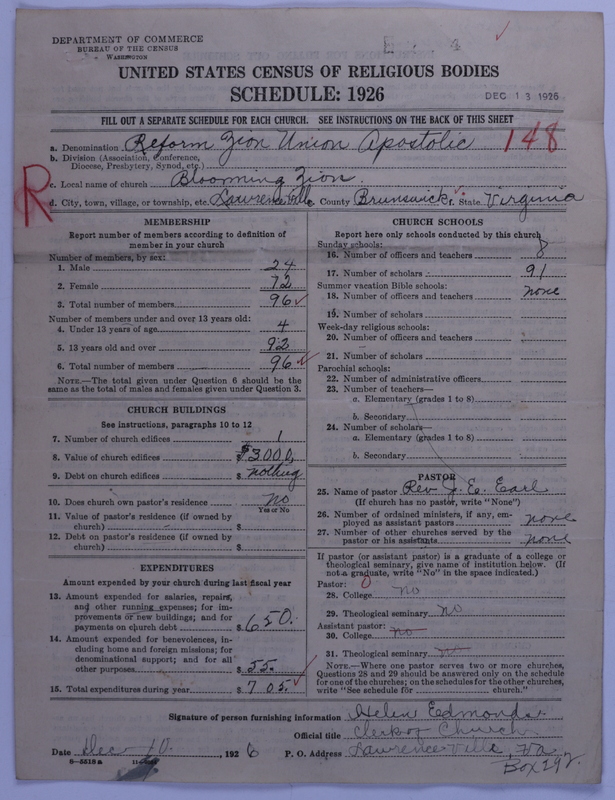 DEPARTMENT OF COMMERCE
BUREAU OF THE CENSUS
WASHINGTON
UNITED STATES CENSUS OF RELIGIOUS BODIES
SCHEDULE: 1926
DEC 13 1926
FILL OUT A SEPARATE SCHEDULE FOR EACH CHURCH. SEE INSTRUCTIONS ON THE BACK OF THIS SHEET
a. Denomination Reform Zion Union Apostolic 148
b. Division (Association, Conference,
Diocese, Presbytery, Synod, etc.)
R
c. Local name of church Blooming Zion.
d. City, town, village, or township, etc. Lawrenceville e. County Brunswick f. State Virginia
MEMBERSHIP
Report number of members according to definition of
member in your church
Number of members, by sex:
1. Male 24
2. Female 72
3. Total number of members 96
Number of members under and over 13 years old:
4. Under 13 years of age 4
5. 13 years old and over 92
6. Total number of members 96
NOTE.—The total given under Question 6 should be the
same as the total of males and females given under Question 3.
CHURCH BUILDINGS
See instructions, paragraphs 10 to 12
7. Number of church edifices 1
8. Value of church edifices $3000
9. Debt on church edifices $ nothing
10. Does church own pastor's residence no
Yes or No
11. Value of pastor's residence (if owned by
church) $
12. Debt on pastor's residence (if owned by
church) $
EXPENDITURES
Amount expended by your church during last fiscal year
13. Amount expended for salaries, repairs,
and other running expenses; for im-
provements or new buildings; and for
payments on church debt $ 650.
14. Amount expended for benevolences, in-
cluding home and foreign missions; for
denominational support; and for all
other purposes $ 55.
15. Total expenditures during year $ 705.
CHURCH SCHOOLS
Report here only schools conducted by this church
Sunday schools:
16. Number of officers and teachers 8
17. Number of scholars 91
Summer vacation Bible schools:
18. Number of officers and teachers none
19. Number of scholars
Week-day religious schools:
20. Number of officers and teachers
21. Number of scholars
Parochial schools:
22. Number of administrative officers
23. Number of teachers—
a. Elementary (grades 1 to 8)
b. Secondary
24. Number of scholars—
a. Elementary (grades 1 to 8)
b. Secondary
PASTOR
25. Name of pastor Rev. J. E. Earl
(If church has no pastor, write "None")
26. Number of ordained ministers, if any, em-
ployed as assistant pastors none
27. Number of other churches served by the
pastor or his assistants none
If pastor (or assistant pastor) is a graduate of a college or
theological seminary, give name of institution below. (If
not a graduate, write "No" in the space indicated.)
Pastor: 0
28. College no
29. Theological seminary no
Assistant pastor:
30. College no
31. Theological seminary no
NOTE.—Where one pastor serves two or more churches,
Questions 28 and 29 should be answered only on the schedule
for one of the churches; on the schedules for the other churches,
write "See schedule for church."
Signature of person furnishing information Helen Edmonds.
Official title Clerk of Church
Date Dec 10. 1926 P. O. Address Lawrenceville Va
8—5518a
Box 292.